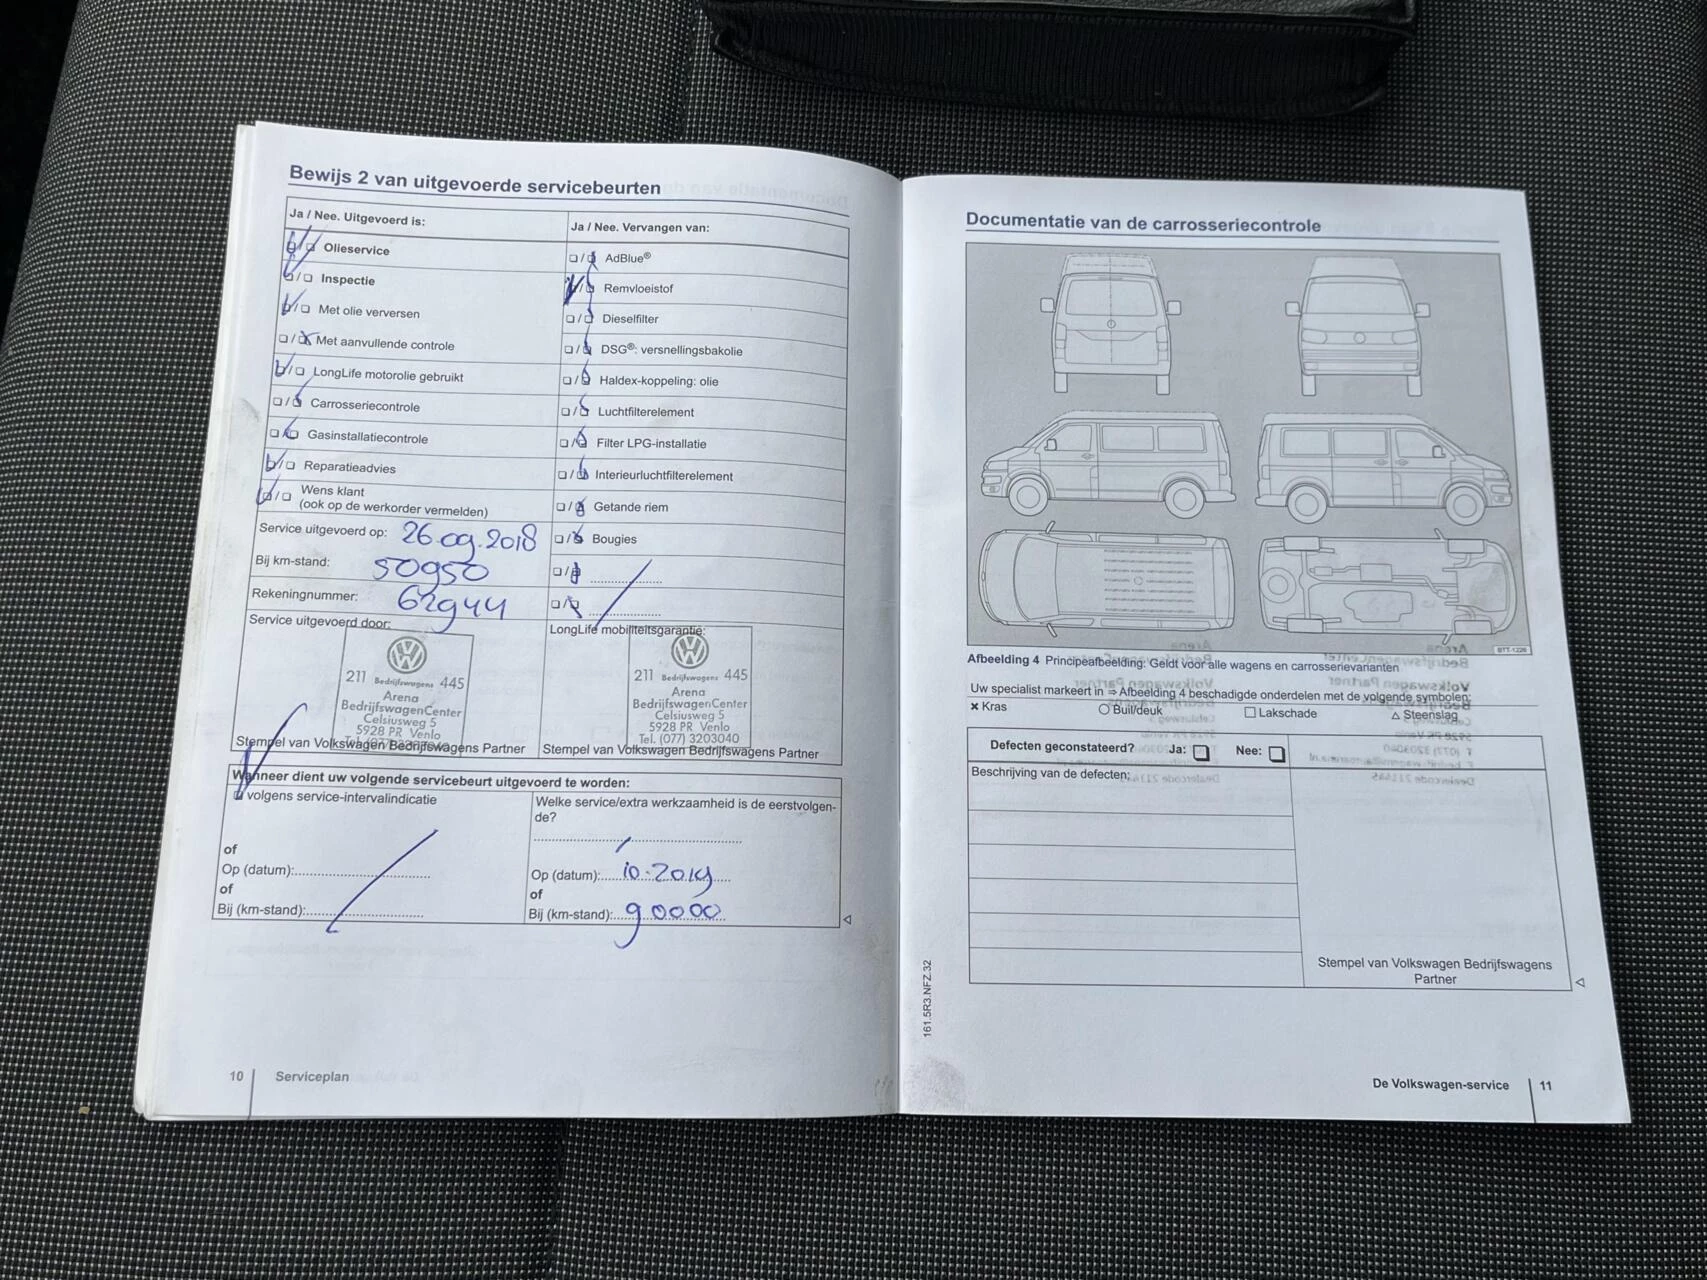 Bewijs 2 van uitgevoerde servicebeurten
Ja / Nee. Uitgevoerd is:
Olieservice
Inspectie
Met olie verversen
Met aanvullende controle
LongLife motorolie gebruikt
Carrosseriecontrole
Gasinstallatiecontrole
Reparatieadvies
Wens klant
(ook op de werkorder vermelden)
Service uitgevoerd op: 26.09.2018
Bij km-stand: 50950
Rekeningnummer: 62944
Service uitgevoerd door:
211 Bedrijfswagens 445
Arena
BedrijfswagenCenter
Celsiusweg 5
5928 PR Venlo
Stempel van Volkswagen Bedrijfswagens Partner
Ja / Nee. Vervangen van:
AdBlue®
Remvloeistof
Dieselfilter
DSG®: versnellingsbakolie
Haldex-koppeling: olie
Luchtfilterelement
Filter LPG-installatie
Interieurluchtfilterelement
Getande riem
Bougies
LongLife mobiliteitsgarantie:
211 Bedrijfswagens 445
Arena
BedrijfswagenCenter
Celsiusweg 5
5928 PR Venlo
Tel. (077) 3203040
Stempel van Volkswagen Bedrijfswagens Partner
Wanneer dient uw volgende servicebeurt uitgevoerd te worden:
volgens service-intervalindicatie
of
Op (datum):
of
Bij (km-stand):
Welke service/extra werkzaamheid is de eerstvolgen-
de?
Op (datum): 10.2019
of
Bij (km-stand): 90000
10 Serviceplan
Documentatie van de carrosseriecontrole
BTT-1226
Afbeelding 4 Principeafbeelding: Geldt voor alle wagens en carrosserievarianten
Uw specialist markeert in ⇒ Afbeelding 4 beschadigde onderdelen met de volgende symbolen:
× Kras
○ Buil/deuk
□ Lakschade
△ Steenslag
Defecten geconstateerd? Ja: Nee:
Beschrijving van de defecten:
Stempel van Volkswagen Bedrijfswagens
Partner
161.5R3.NFZ.32
De Volkswagen-service 11